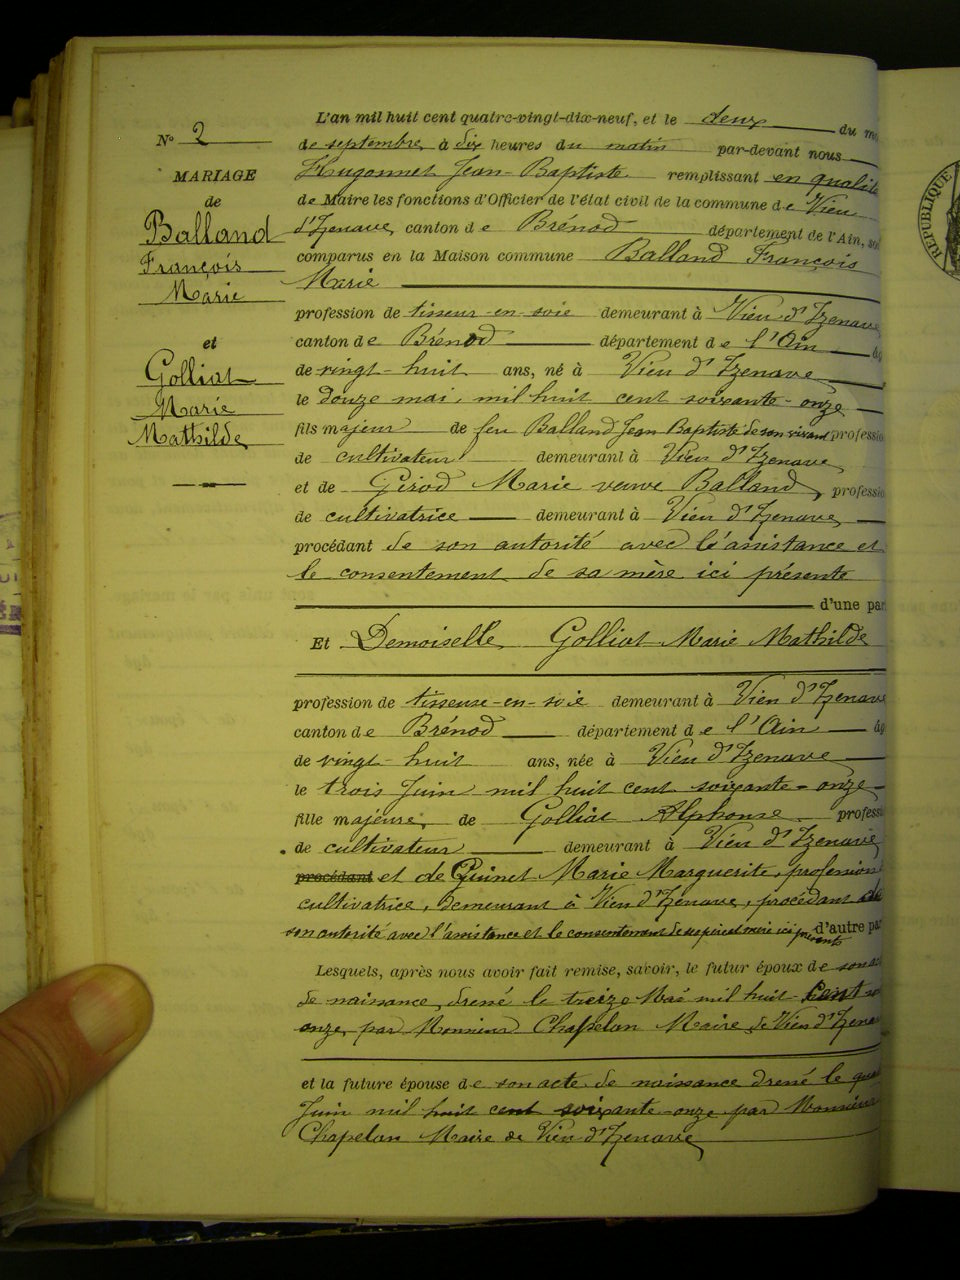 N° 2
MARIAGE
de
Balland
François
Marie
et
Golliat
Marie
Mathilde
L'an mil huit cent quatre-vingt-dix-neuf, et le deux du m
de septembre, à dix heures du matin par-devant nous
Hugonnet Jean-Baptiste remplissant en qualité
de Maire les fonctions d'Officier de l'état civil de la commune de Vieu
d'Izenave, canton de Brénod département de l'Ain, son
comparus en la Maison commune Balland François
Marie
profession de tisseur-en-soie demeurant à Vieu d'Izenave
canton de Brénod département de l'Ain âg
de vingt-huit ans, né à Vieu d'Izenave
le douze mai, mil huit cent soixante-onze
fils majeur de feu Balland Jean Baptiste de son vivant professio
de cultivateur demeurant à Vieu d'Izenave
et de Girod Marie veuve Balland, professio
de cultivatrice demeurant à Vieu d'Izenave
procédant de son autorité avec l'assistance et
le consentement de sa mère ici présente
d'une par
Et Demoiselle Golliat Marie Mathilde
profession de tisseuse-en-soie demeurant à Vieu d'Izenave
canton de Brénod département de l'Ain âg
de vingt-huit ans, née à Vieu d'Izenave
le trois Juin mil huit cent soixante-onze
fille majeure, de Golliat Alphonse professi
de cultivateur demeurant à Vieu d'Izenave
procédant et de Guinet Marie Marguerite, profession
cultivatrice, demeurant à Vieu d'Izenave, procédant de
son autorité avec l'assistance et le consentement de ses père et mère ici présents d'autre par
Lesquels, après nous avoir fait remise, savoir, le futur époux de son ac
de naissance, dressé le treize Mai mil huit-cent so
onze, par Monsieur Chapelan Maire de Vieu d'Izenave
et la future épouse de son acte de naissance dressé le qua
Juin mil huit cent soixante-onze par Monsieur
Chapelan Maire de Vieu d'Izenave
RÉPUBLIQUE